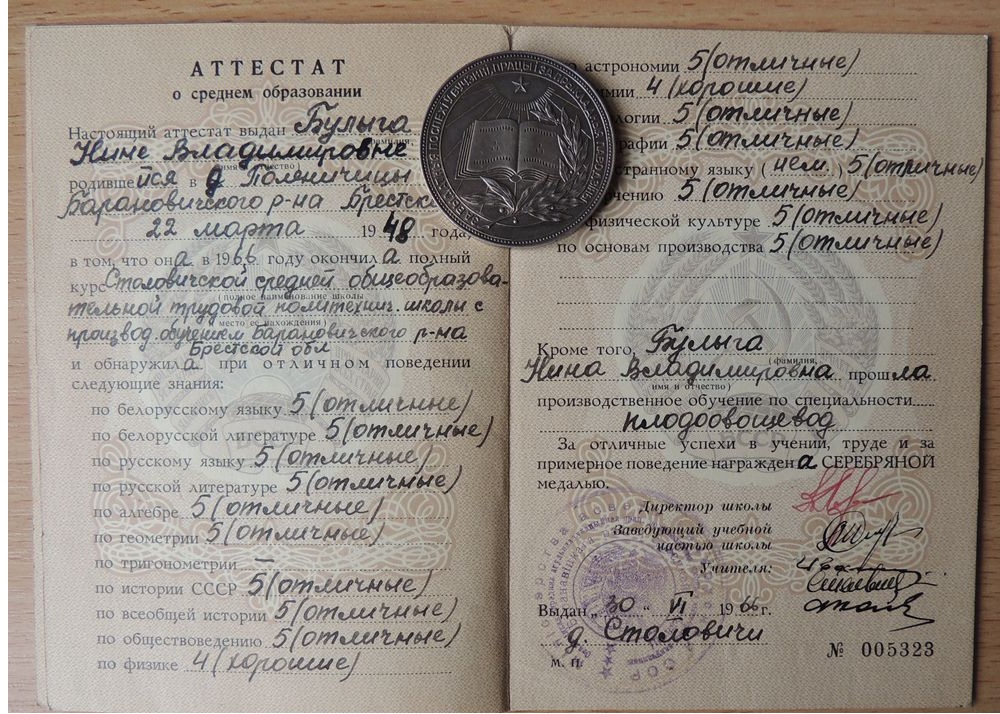 АТТЕСТАТ
о среднем образовании
Настоящий аттестат выдан Булыга
Нине Владимировне
(имя и отчество)
родившейся в д Полничицы
Барановичского р-на Брестск
22 марта 1948 года,
в том, что она в 1966 году окончила полный
курс Столовичской средней общеобразова-
(полное наименование школы
тельной трудовой политехнич. школы с
и место ее нахождения)
производ. обучением Барановичского р-на
Брестской обл
и обнаружила при ОТЛИЧНОМ поведении
следующие знания:
по белорусскому языку 5 (отличные)
по белорусской литературе 5 (отличные)
по русскому языку 5 (отличные)
по русской литературе 5 (отличные)
по алгебре 5 (отличные)
по геометрии 5 (отличные)
по тригонометрии —
по истории СССР 5 (отличные)
по всеобщей истории 5 (отличные)
по обществоведению 5 (отличные)
по физике 4 (хорошие)
ЗА ДАСЯГНЕННІ Ў ВУЧЭННІ, ПРАЦЫ І ЗА
по астрономии 5 (отличные)
имии 4 (хорошие)
ологии 5 (отличные)
рафии 5 (отличные)
странному языку (нем.) 5 (отличные)
чению 5 (отличные)
физической культуре 5 (отличные)
по основам производства 5 (отличные)
Кроме того, Булыга
(фамилия,
Нина Владимировна прошла
имя и отчество)
производственное обучение по специальности
плодоовощевод
За отличные успехи в учении, труде и за
примерное поведение награждена СЕРЕБРЯНОЙ
медалью.
Директор школы
Заведующий учебной
частью школы
Учителя:
Выдан „30" VI 1966 г.
д. Столовичи
М. П.
№ 005323